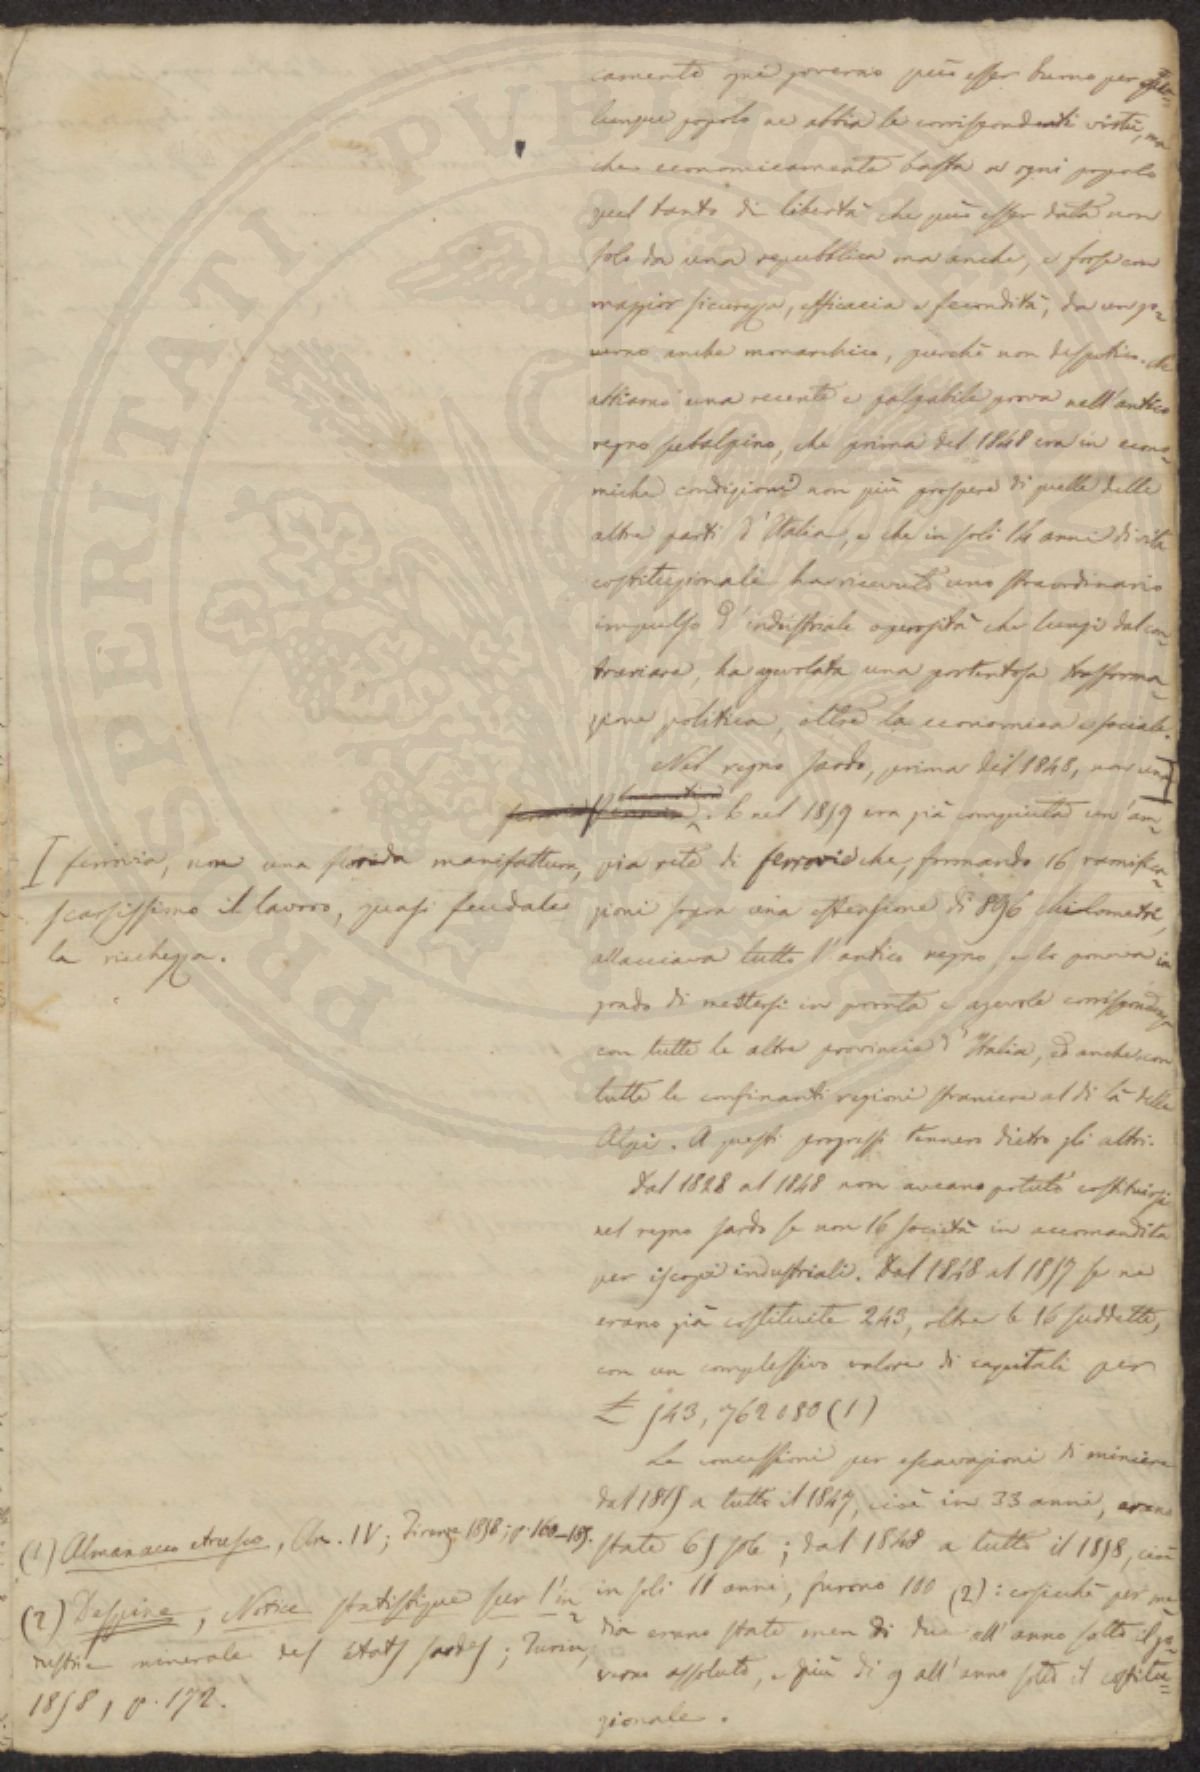 camente ogni governo può esser buono per qua=
lunque popolo ne abbia le corrispondenti virtù, ma
che economicamente basta a ogni popolo
quel tanto di libertà che può esser data non
solo da una repubblica ma anche, e forse con
maggior sicurezza, efficacia e fecondità, da un go=
verno anche monarchico, purchè non despotico. Ne
abbiamo una recente e palpabile prova nell'antico
regno subalpino, che prima del 1848 era in econo=
miche condizioni non più prospere di quelle delle
altre parti d'Italia, e che in soli 14 anni di vita
costituzionale ha ricevuto uno straordinario
impulso d'industriale operosità che lungi dal con=
trariare, ha agevolata una portentosa trasforma=
zione politica, oltre la economica e sociale.
Nel regno sardo, prima del 1848, non una
E nel 1859 era già compiuta un'am=
pia rete di ferrovie che, formando 16 ramifica=
zioni sopra una estensione di 896 chilometri,
allacciava tutto l'antico regno, e lo poneva in
grado di mettersi in pronta e agevole corrispondenza
con tutte le altre provincie d'Italia, ed anche con
tutte le confinanti regioni straniere al di là delle
Alpi. A questi progressi tennero dietro gli altri.
Dal 1828 al 1848 non aveano potuto costituirsi
nel regno sardo se non 16 società in accomandita
per iscopi industriali. Dal 1848 al 1857 se ne
erano già costituite 243, oltre le 16 suddette,
con un complessivo valore di capitali per
£ 543,762080 (1)
Le concessioni per escavazioni di miniere
dal 1815 a tutto il 1847, cioè in 33 anni, erano
state 65 sole; dal 1848 a tutto il 1858, cioè
in soli 11 anni, furono 100 (2): cosicchè per me=
dia erano state men di due all'anno sotto il go=
verno assoluto, e più di 9 all'anno sotto il costitu=
zionale.
I ferrovia, non una florida manifattura,
scarsissimo il lavoro, quasi feudale
la ricchezza.
(1) Almanacco etrusco, An. IV; Firenze 1858; p. 160-185.
(2) Despine, Notice statistique sur l'in=
dustrie minerale des états sardes; Turin,
1858, p. 172.
PROSPERITATI PUBLICAE